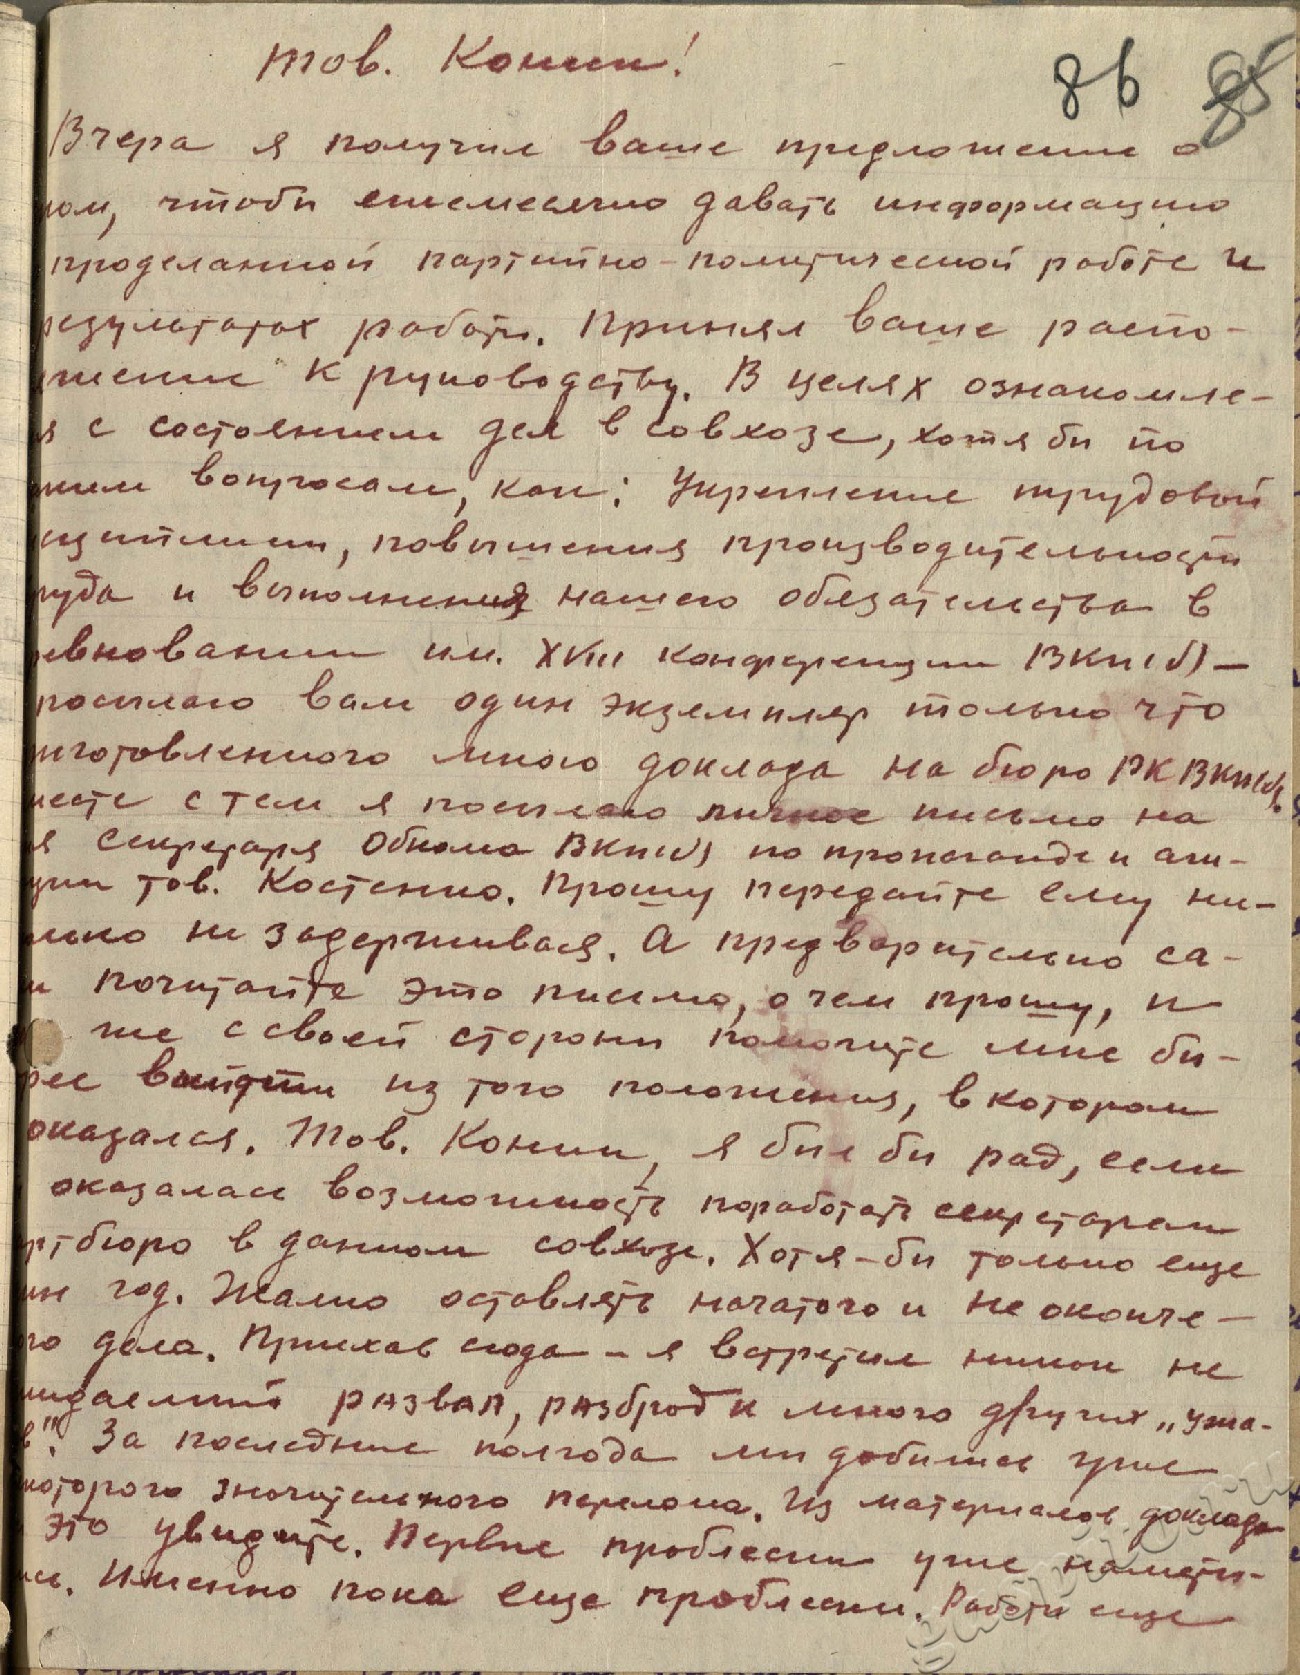 тов. Конин!
86 85
Вчера я получил ваше предложение о
том, чтобы ежемесячно давать информацию
проделанной партийно-политической работе и
результатах работы. Принял ваше распо-
жение к руководству. В целях ознакомле-
я с состоянием дел в совхозе, хотя бы по
ким вопросам, как: Укрепление трудовой
исциплины, повышения производительности
руда и выполнения нашего обязательства в
ревновании им. XVIII конференции ВКП(б) –
посылаю вам один экземпляр только что
иготовленного мною доклада на бюро РК ВКП(б).
месте с тем я посылаю личное письмо на
я секретаря Обкома ВКП(б) по пропаганде и аги-
ции тов. Костенко. Прошу передайте ему ни-
лько не задерживая. А предварительно са-
и почитайте это письмо, о чем прошу, и
же с своей стороны помогите мне бы-
рее выйти из того положения, в котором
оказался. Тов. Конин, я был бы рад, если
оказалась возможность поработать секретарем
ртбюро в данном совхозе. Хотя-бы только еще
ин год. Жалко оставлять начатого и не оконче-
ого дела. Приехав сюда – я встретил никак не
жидаемый развал, разброд и много других „ужа-
в". За последние полгода мы добились уже
которого значительного перелома. Из материалов доклада
это увидите. Первые проблески уже намети-
ись. Именно пока еще проблески. Работы еще